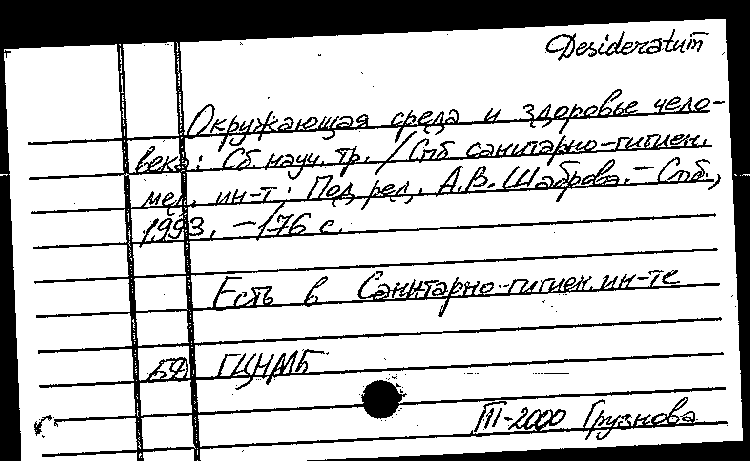 Desideratum
Окружающая среда и здоровье чело-
века: Сб науч. тр. / Спб санитарно-гигиен.
мед. ин-т; Под ред. А.В. Шаброва. – Спб.,
1993. – 176 с.
Есть в Санитарно-гигиен. ин-те
БД ГЦНМБ
III-2000 Грузнова